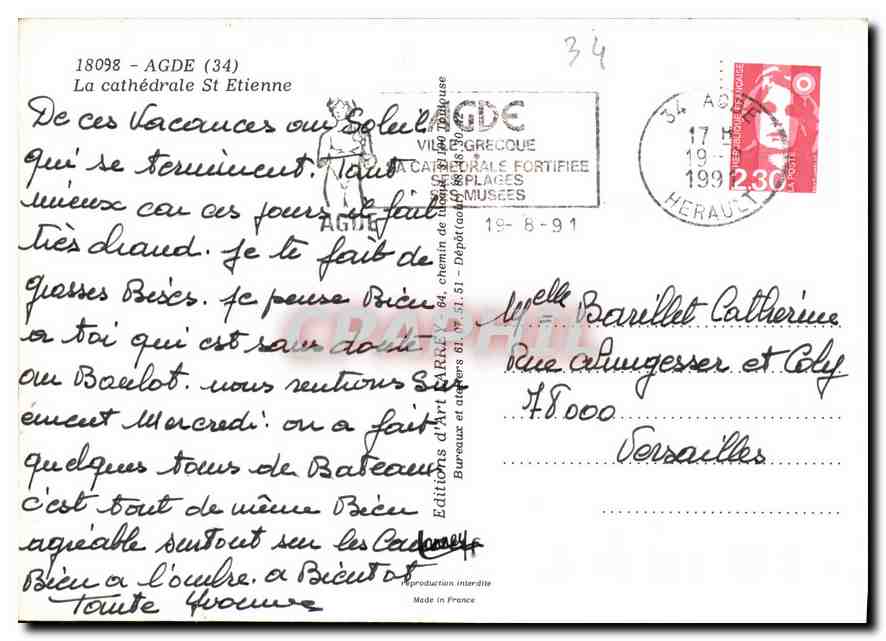 18098 - AGDE (34)
La cathédrale St Etienne
De ces Vacances au Soleil
qui se terminent. Tant
mieux car ces jours il fait
très chaud. Je te fait de
grosses Bises. Je pense Bien
a toi qui est sans doute
au Boulot. nous rentrons Sur
ement Mercredi. on a fait
quelques tours de Bateaux
c'est tout de même Bien
agréable surtout sur les
Bien a l'ombre. a Bientot
Tante Yvonne
Editions d'Art LARREY - 64, chemin de 31100 Toulouse
Bureaux et ateliers 61.07.51.51 - Dépôt (août)
reproduction interdite
Made in France
34
AGDE
AGDE
VILLE GRECQUE
SA CATHEDRALE FORTIFIEE
SES PLAGES
SES MUSEES
19-8-91
34 AGDE
17 H
19-
1991
HERAULT
REPUBLIQUE FRANÇAISE
2,30
LA POSTE
Melle Barillet Catherine
Rue a Nungesser et Coly
78000
Versailles
CPAPHIL